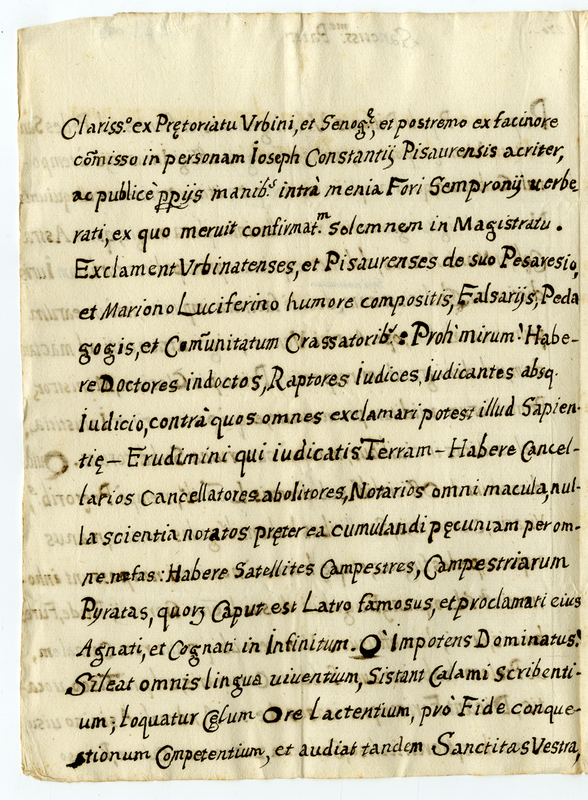 Clariss.º ex Prętoriatu Vrbini, et Senogę, et postremo ex facinore
cõmisso in personam Ioseph Constantij Pisaurensis acriter,
ac publicè ppijs manib.s intrà menia Fori Sempronij uerbe
rati, ex quo meruit confirmat.m solemnem in Magistratu.
Exclament Vrbinatenses, et Pisaurenses de suo Pesaresio
et Mariono Luciferino humore compositis, Falsarijs, Peda
gogis, et Com̃unitatum Crassatorib.s: Proh' mirum! Habe-
re Doctores indoctos, Raptores Iudices, Iudicantes absq.
Iudicio, contrà quos omnes exclamari potest illud Sapien-
tię - Erudimini qui iudicatis Terram - Habere Cancel-
larios Cancellatores abolitores, Notarios omni macula, nul-
la scientia notatos pręter ea cumulandi pęcuniam per om-
ne nefas: Habere Satellites Campestres, Campestriarum
Pyratas, quorz Caput est Latro famosus, et proclamati eius
Agnati, et Cognati in Infinitum. O' Impotens Dominatus!
Sileat omnis lingua uiuentium, Sistant Calami Scribenti-
um; loquatur Cęlum Ore Lactentium, prò Fide conque-
stionum Competentium, et audiat tandem Sanctitas Vestra,